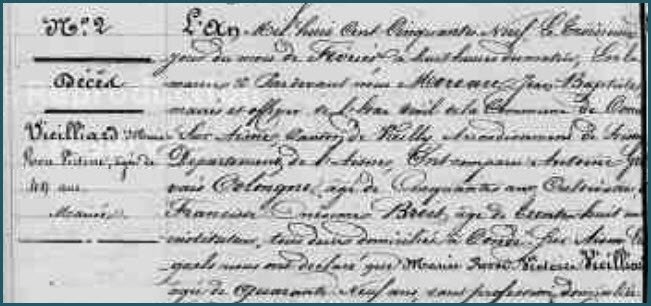 N.° 2
Décès
Vieilliard Marie
Rose Victoire, âgée de
49 ans
Mariée
L'An Mil huit Cent Cinquante Neuf le troisième
jour du mois de Février à huit heures du matin, En la
mairie & Pardevant nous Moreau Jean Baptiste
maire et officier de l'état civil de la Commune de Condé
Sur Aisne, Canton de Vailly Arrondissement de
Département de l'Aisne, Ont comparu Antoine
Cologne, âgé de Cinquante ans Cultivateur
François Brost, âgé de trente huit ans
instituteur, tous deux domiciliés à Condé Sur Aisne
quels nous ont déclaré que Marie Rose Victoire Vieilliard
agée de Quarante Neuf ans, sans profession, domiciliée